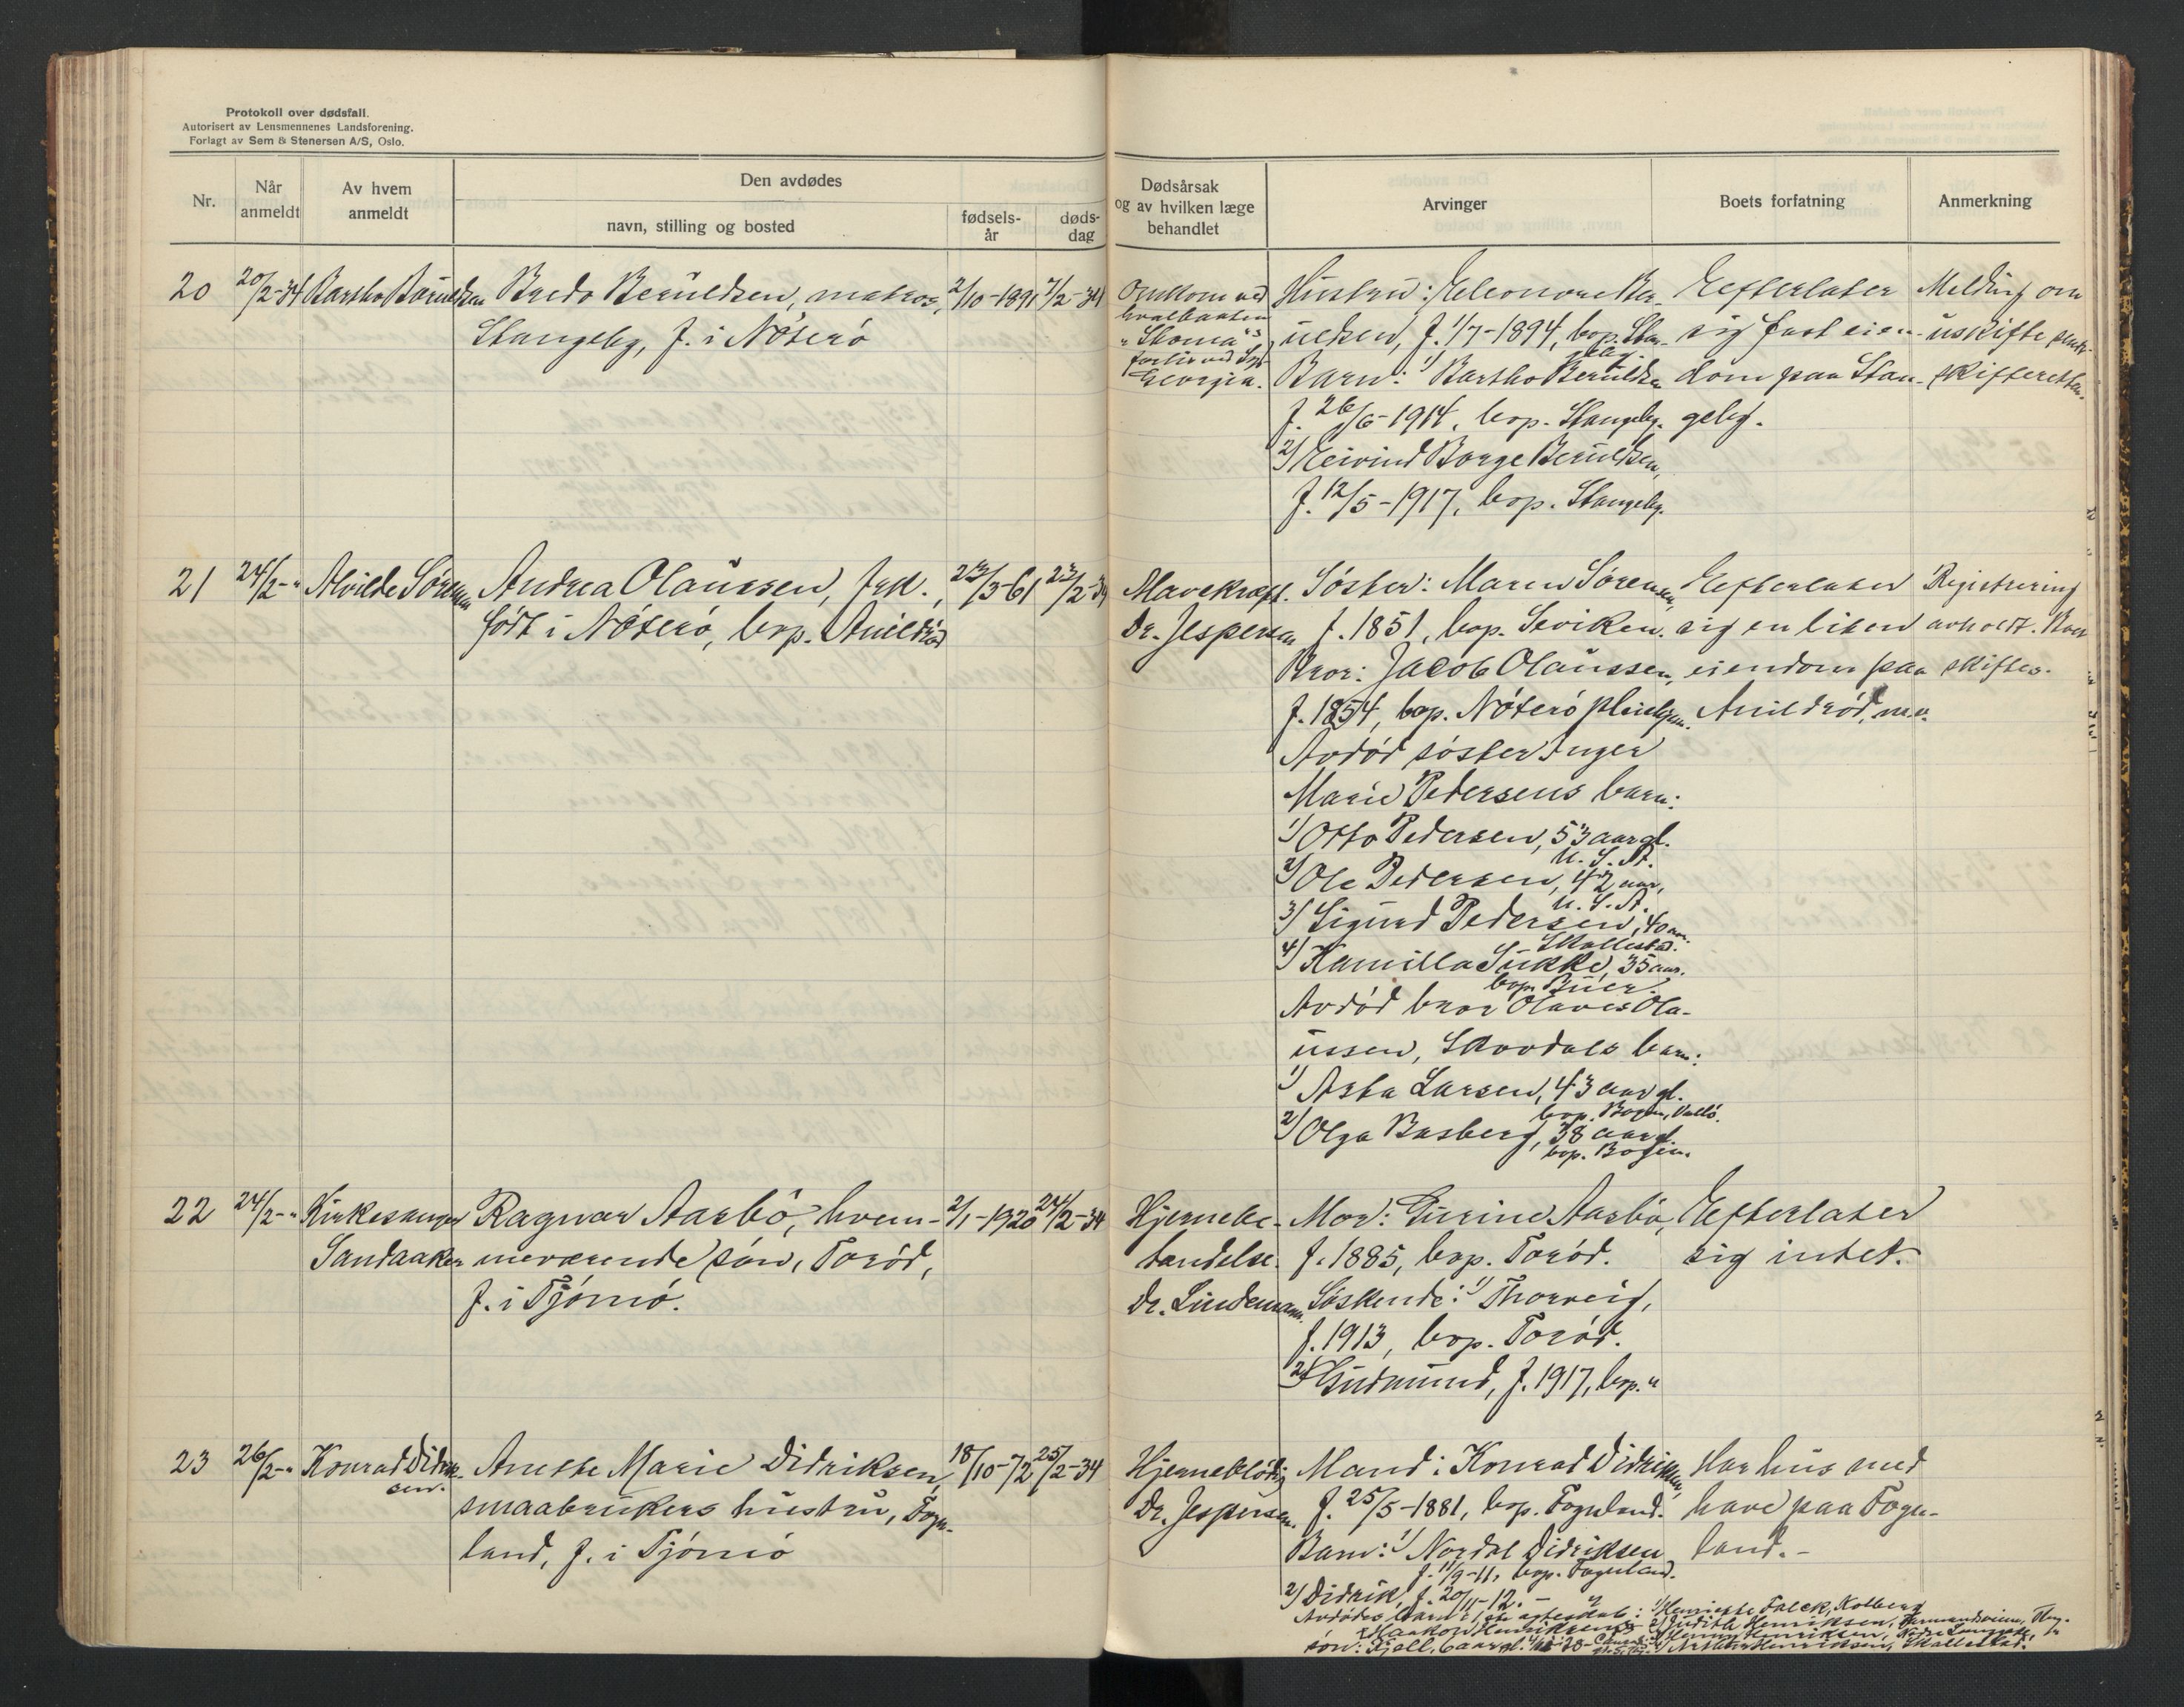 Protokoll over dødsfall.
Autorisert av Lensmennenes Landsforening.
Forlagt av Sem & Stenersen A/S, Oslo.
Nr.
Når anmeldt
Av hvem anmeldt
Den avdødes
navn, stilling og bosted
fødsels-år
døds-dag
Dødsårsak og av hvilken læge behandlet
Arvinger
Boets forfatning
Anmerkning
20
20/2-34
Bartho Beruldsen
Bredo Beruldsen, matros,
Stangeby, f. i Nøterø
2/10-1891
7/2-34
Omkom ved
hvalbaaten
"Shoma"s
forlis ved Syd
Georgia.
Hustru: Eleonore Ber-
uldsen, f. 1/7-1894, bop. Stan-
geby.
Barn: 1) Bartho Beruldsen
f. 26/6-1914, bop. Stangeby.
2) Eivind Borge Beruldsen,
f. 12/5-1917, bop. Stangeby.
Efterlater
sig fast eien-
dom paa Stan-
geby.
Melding om
uskifte
skifteretten.
21
24/2-"
Alvilde Sørensen
Andrea Olaussen, frk.,
født i Nøterø, bop. Arildrød
23/3-61
23/2-34
Mavekræft.
Dr. Jespersen
Søster: Maren Sørensen,
f. 1851, bop. Seviken.
Bror: Jacob Olaussen,
f. 1854, bop. Nøterø pleiehjem.
Avdød søster Inger
Marie Pedersens barn:
1) Otto Pedersen, 53 aar gl.
U. S. A.
2) Ole Pedersen, 42 aar,
U. S. A.
3) Sigurd Pedersen, 40 aar.
Skallestad.
4) Kamilla Sukke, 35 aar.
bop. Buer.
Avdød bror Olaves Ola-
ussen, Skovdals barn:
1) Asta Larsen, 43 aar gl.
bop. Bogen, Vallø.
2) Olga Basberg, 38 aar gl.
bop. Bogen.
Efterlater
sig en liten
eiendom paa
Arildrød, m.v.
Registrering
avholdt. Boet
skiftes.
22
24/2-"
Kirkesanger
Sandaaker
Ragnar Aasbø, hjem-
meværende søn, Torød,
f. i Tjømø.
2/1-1920
24/2-34
Hjernebe-
tændelse.
Dr. Lindemann.
Mor: Gurine Aasbø,
f. 1885, bop. Torød.
Søskende: 1) Thorveig,
f. 1913, bop. Torød.
2) Gudmund, f. 1917, bop. "
Efterlater
sig intet.
23
26/2-"
Konrad Didrik-
sen.
Anette Marie Didriksen,
smaabrukers hustru, Fogn-
land, f. i Tjømø
18/10-72
25/2-34
Hjerneblødng
Dr. Jespersen.
Mand: Konrad Didriksen,
f. 25/5-1881, bop. Fognland.
Barn: 1) Nordal Didriksen
f. 11/9-11, bop. Fognland.
2) Didrik, f. 20/11-12. - "
Avdødes barn i 1ste egteskab: 1) Henriette Falck, Kolberg
2) Judith Henriksen,
Haakon Henriksens
søn: Kjell, 6 aar gl.
Henriksen, Skallestad.
Har hus med
have paa Fogn-
land. -